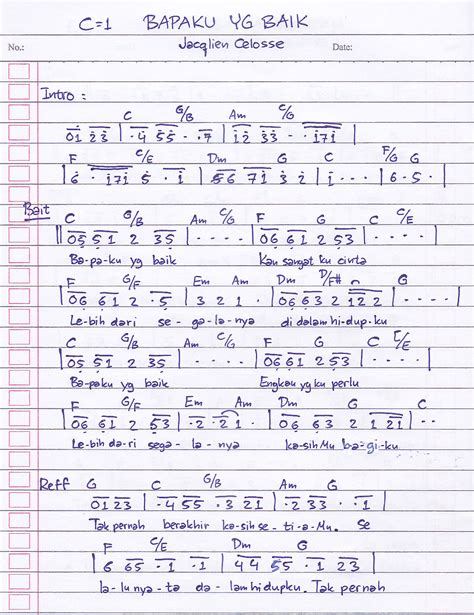 C=1 BAPAKU YG BAIK
No.: Jacqlien Celosse Date:
Intro :
C G/B Am C/G
01 23 | · 4 55 · · 7 | 12 33 · · 171 |
F C/E Dm G C F/G G
| 6 · 171 5 · 1 | 56 71 3 2 | 1 · · · | 6 · 5 · |
Bait C G/B Am C/G F G C C/E
|| 05 51 2 35 | · · · · | 06 61 2 53 | · · · · |
Ba-pa-ku yg baik Kau sangat ku cinta
F G/F Em Am Dm D/F# G
| 06 61 2 · 5 | 3 2 1 · | 06 63 2 12 2 | · · · · |
Le-bih dari se-ga-la-nya di dalam hi-dup-ku
C G/B Am C/G F G C C/E
| 05 51 2 35 | · · · · | 06 61 2 53 | · · · · |
Ba-paku yg baik Engkau yg ku perlu
F G/F Em Am Dm G C
| 06 61 2 53 | · 2 · 2 1 · | 06 63 2 1 21 | · ·
Le-bih da-ri sega-la-nya ka-sihMu ba-gi-ku
Reff G C G/B Am G
01 23 | · 4 55 · 3 21 | · 2 33 · · 1 |
Tak pernah berakhir ka-sih se-ti-a-Mu. Se
F C/E Dm G
| 6 65 · 1 · 1 | 44 55 · 1 23 |
la-lu nya-ta da-lam hidupku. Tak pernah